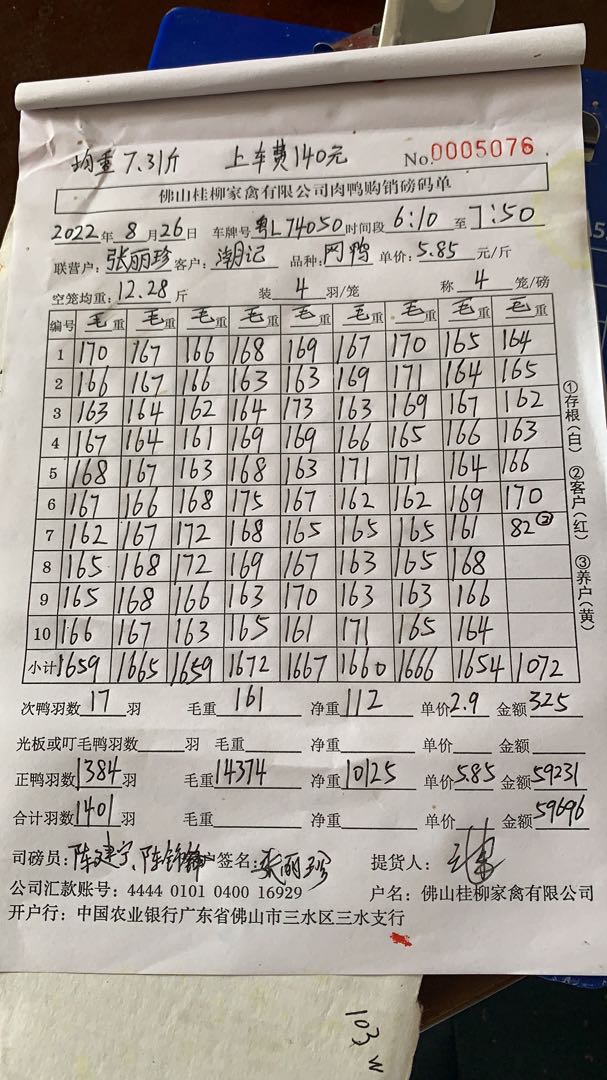 均重7.31斤 上车费140元 No.0005076
佛山桂柳家禽有限公司肉鸭购销磅码单
2022年8月26日 车牌号粤L74050时间段6:10至7:50
联营户:张丽珍客户:潮记 品种:网鸭 单价:5.85元/斤
空笼均重:12.28斤 装4羽/笼 称4笼/磅
编号 毛重 毛重 毛重 毛重 毛重 毛重 毛重 毛重 毛重
1 170 167 166 168 169 167 170 165 164
2 166 167 166 163 163 169 171 164 165
3 163 164 162 164 173 163 169 167 162
4 167 164 161 169 169 166 165 166 163
5 168 167 163 168 163 171 171 164 166
6 167 166 168 175 167 162 162 169 170
7 162 167 172 168 165 165 165 161 82②
8 165 168 172 169 167 163 165 168
9 165 168 166 163 170 163 163 166
10 166 167 163 165 161 171 165 164
小计 1659 1665 1659 1672 1667 1660 1666 1654 1072
①存根(白) ②客户(红) ③养户(黄)
次鸭羽数17羽 毛重161 净重112 单价2.9 金额325
光板或叮毛鸭羽数 羽 毛重 净重 单价 金额
正鸭羽数1384羽 毛重14374 净重10125 单价5.85 金额59231
合计羽数1401羽 毛重 净重 单价 金额59696
司磅员:陈建宁、陈锦 户签名:张丽珍 提货人:
公司汇款账号:4444 0101 0400 16929 户名:佛山桂柳家禽有限公司
开户行:中国农业银行广东省佛山市三水区三水支行
103